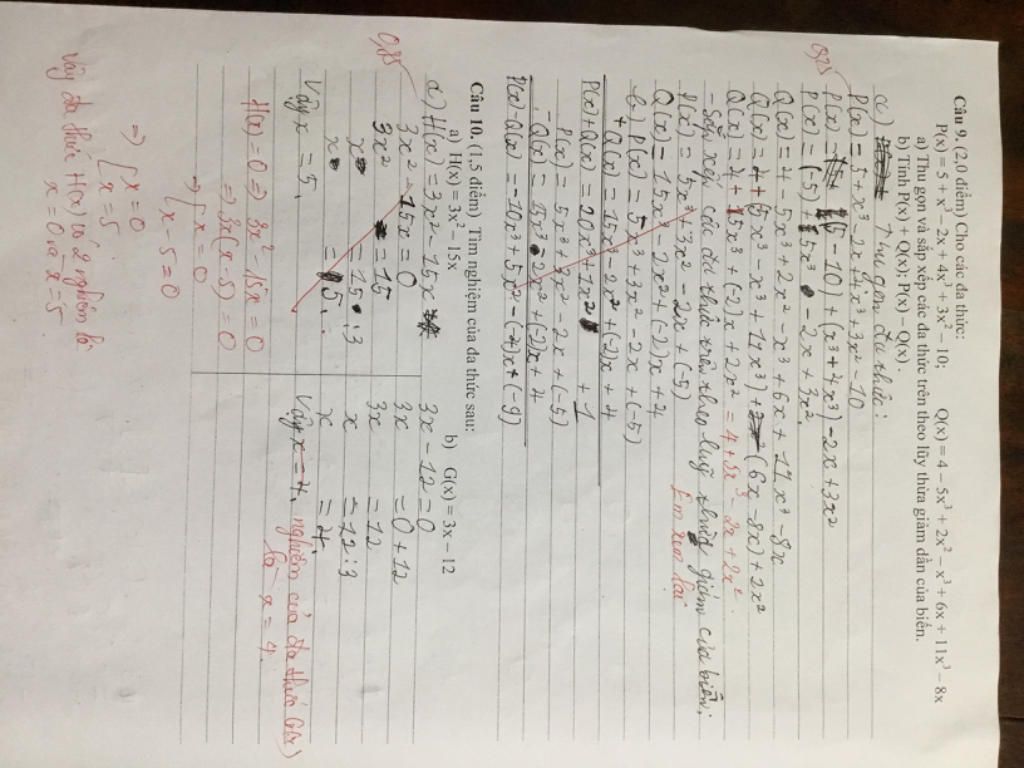 Câu 9. (2,0 điểm) Cho các đa thức:
P(x) = 5 + x³ − 2x + 4x³ + 3x² − 10; Q(x) = 4 − 5x³ + 2x² − x³ + 6x + 11x³ − 8x
a) Thu gọn và sắp xếp các đa thức trên theo lũy thừa giảm dần của biến.
b) Tính P(x) + Q(x); P(x) − Q(x).
0,25
a) Thu gọn đa thức:
P(x) = 5 + x³ − 2x + 4x³ + 3x² − 10
P(x) = (5 − 10) + (x³ + 4x³) − 2x + 3x²
P(x) = (-5) + 5x³ − 2x + 3x²
Q(x) = 4 − 5x³ + 2x² − x³ + 6x + 11x³ − 8x
Q(x) = 4 + (5x³ − x³ + 11x³) + (6x − 8x) + 2x²
Q(x) = 4 + 15x³ + (-2)x + 2x² = 4 + 5x³ − 2x + 2x²
- Sắp xếp các đa thức trên theo luỹ thừa giảm của biến;
P(x) = 5x³ + 3x² − 2x + (-5) Em xem lại
Q(x) = 15x³ − 2x² + (-2)x + 4
b) P(x) = 5x³ + 3x² − 2x + (-5)
+ Q(x) = 15x − 2x² + (-2)x + 4
P(x) + Q(x) = 20x³ + 1x² + 1
P(x) = 5x³ + 3x² − 2x + (-5)
- Q(x) = 15x³ − 2x² + (-2)x + 4
P(x) − Q(x) = −10x³ + 5x² − (-4)x + (-9)
Câu 10. (1,5 điểm) Tìm nghiệm của đa thức sau:
a) H(x) = 3x² − 15x b) G(x) = 3x − 12
0,75
a) H(x) = 3x² − 15x
3x² − 15x = 0
3x² = 15
x = 15 : 3
x = 5.
Vậy x = 5.
3x − 12 = 0
3x = 0 + 12
3x = 12
x = 12 : 3
x = 4.
Vậy x = 4. nghiệm của đa thức G(x)
là x = 4.
H(x) = 0 ⇒ 3x² − 15x = 0
⇒ 3x(x − 5) = 0
⇒ x = 0
x − 5 = 0
⇒ x = 0
x = 5
Vậy đa thức H(x) có 2 nghiệm là
x = 0 và x = 5